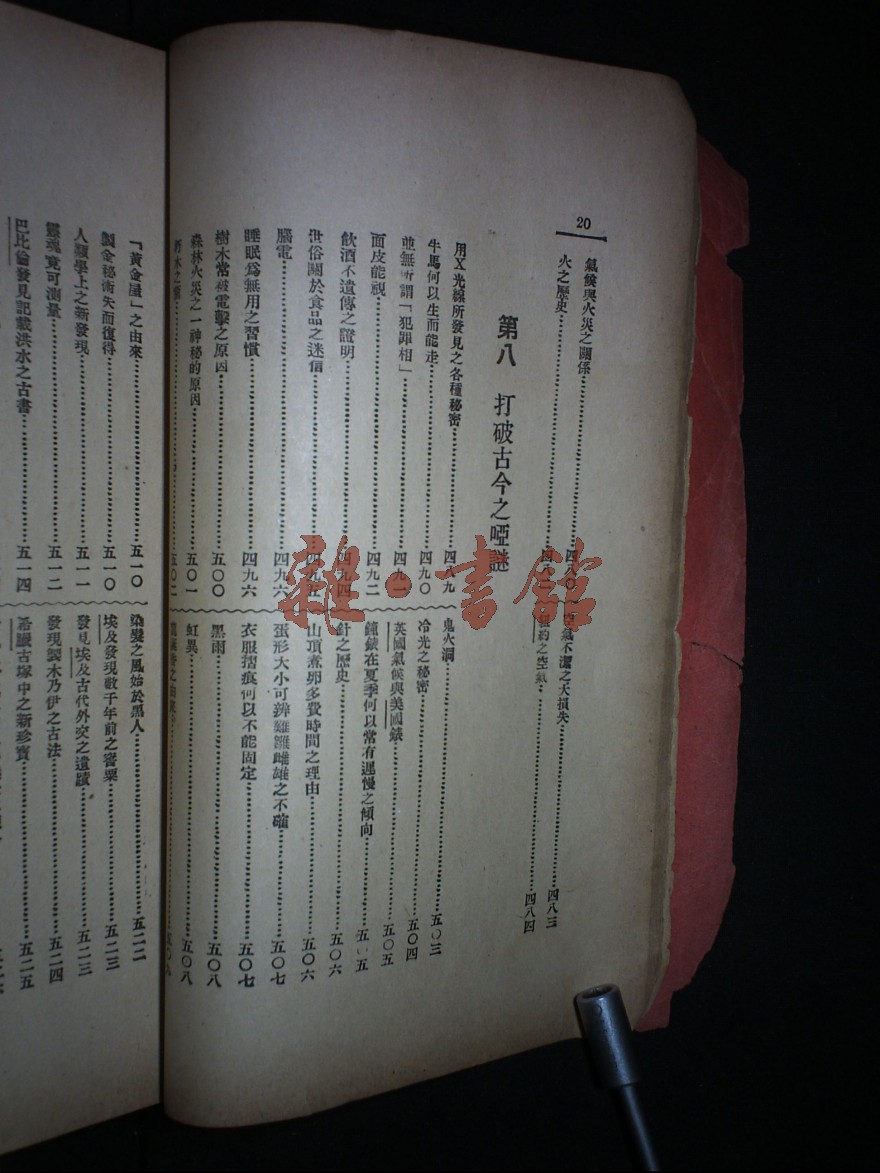 20
氣候與火災之關係……四八〇
火之歷史……四八二
空氣不潔之大損失……四八三
紐約之空氣……四八四
第八 打破古今之啞謎
用X光線所發見之各種秘密……四八九
牛馬何以生而能走……四九〇
並無所謂「犯罪相」……四九一
面皮能視……四九二
飲酒不遺傳之證明……四九四
世俗關於食品之迷信……四九五
腦電……四九六
睡眠爲無用之習慣……四九六
樹木常被電擊之原因……五〇〇
森林火災之一神秘的原因……五〇一
木之……五〇二
鬼火洞……五〇三
冷光之秘密……五〇四
英國氣候與美國錶……五〇五
鐘錶在夏季何以常有遲慢之傾向……五〇五
針之歷史……五〇六
山頂煮卵多費時間之理由……五〇六
蛋形大小可辨雞雛雌雄之不確……五〇七
衣服摺痕何以不能固定……五〇七
黑雨……五〇八
虹異……五〇八
之由來……五〇九
「黃金屋」之由來……五一〇
製金秘術失而復得……五一〇
人類學上之新發現……五一一
靈魂竟可測量……五一二
巴比倫發見記載洪水之古書……五一四
染髮之風始於黑人……五二二
埃及發現數千年前之罌粟……五二三
發見埃及古代外交之遺蹟……五二三
發現製木乃伊之古法……五二四
希臘古塚中之新珍寶……五二五
雜·書館